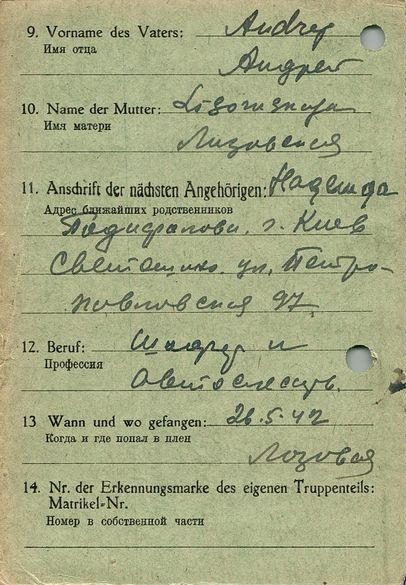 9. Vorname des Vaters: Andrey
Имя отца
Андрей
10. Name der Mutter:
Имя матери
Лизовская
11. Anschrift der nächsten Angehörigen: Надежда
Адрес ближайших родственников
г. Киев
ул. Петро-
павловская 97
12. Beruf: и
Профессия
Автослесарь.
13 Wann und wo gefangen: 26.5.42
Когда и где попал в плен
Лозовая
14. Nr. der Erkennungsmarke des eigenen Truppenteils:
Matrikel-Nr.
Номер в собственной части